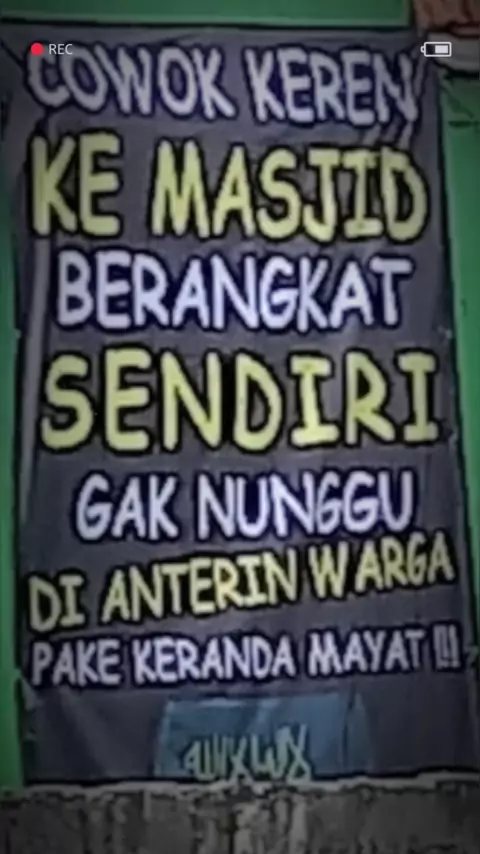 REC
COWOK KEREN
KE MASJID
BERANGKAT
SENDIRI
GAK NUNGGU
DI ANTERIN WARGA
PAKE KERANDA MAYAT !!!